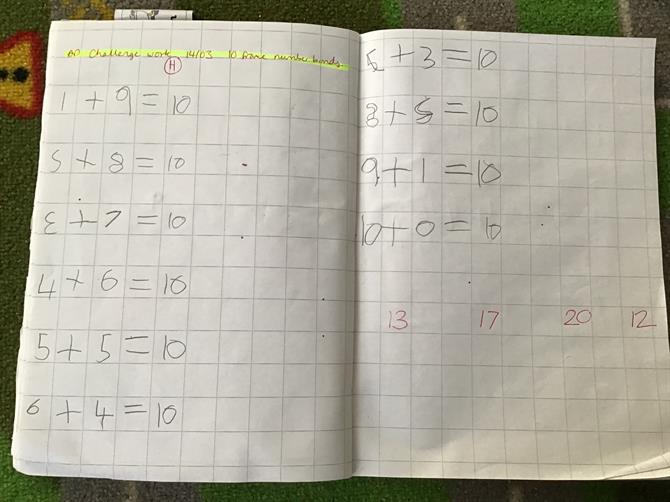 Challenge work 14/03 10 frame number bonds.
H
1 + 9 = 10
2 + 8 = 10
3 + 7 = 10
4 + 6 = 10
5 + 5 = 10
6 + 4 = 10
+ 3 = 10
8 + 2 = 10
9 + 1 = 10
10 + 0 = 10
13 17 20 12